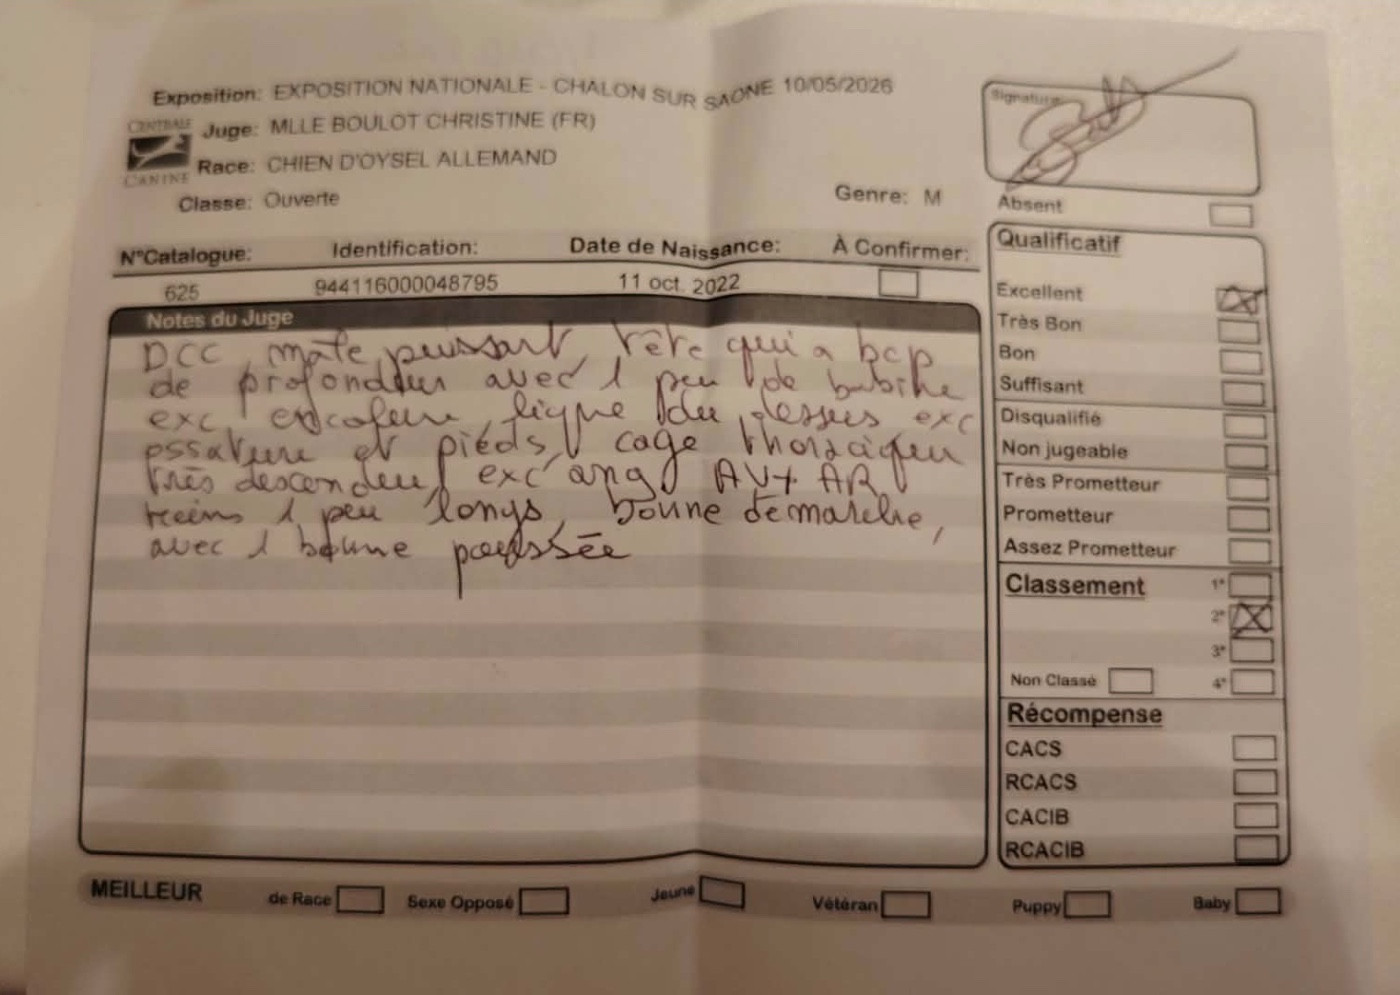 Exposition: EXPOSITION NATIONALE - CHALON SUR SAONE 10/05/2026
CENTRALE
CANINE
Juge: MLLE BOULOT CHRISTINE (FR)
Race: CHIEN D'OYSEL ALLEMAND
Classe: Ouverte
Genre: M
Signature
Absent
N°Catalogue: Identification: Date de Naissance: À Confirmer:
625 944116000048795 11 oct. 2022
Notes du Juge
DCC, mâle puissant, tête qui a bcp
de profondeur avec 1 peu de babine
exc encolure, ligne du dessus, exc
ossature et pieds, cage thoracique
très descendue, exc ang AV + AR
reins 1 peu longs, bonne démarche,
avec 1 bonne poussée
Qualificatif
Excellent
Très Bon
Bon
Suffisant
Disqualifié
Non jugeable
Très Prometteur
Prometteur
Assez Prometteur
Classement 1°
2°
3°
Non Classé 4°
Récompense
CACS
RCACS
CACIB
RCACIB
MEILLEUR de Race Sexe Opposé Jeune Vétéran Puppy Baby